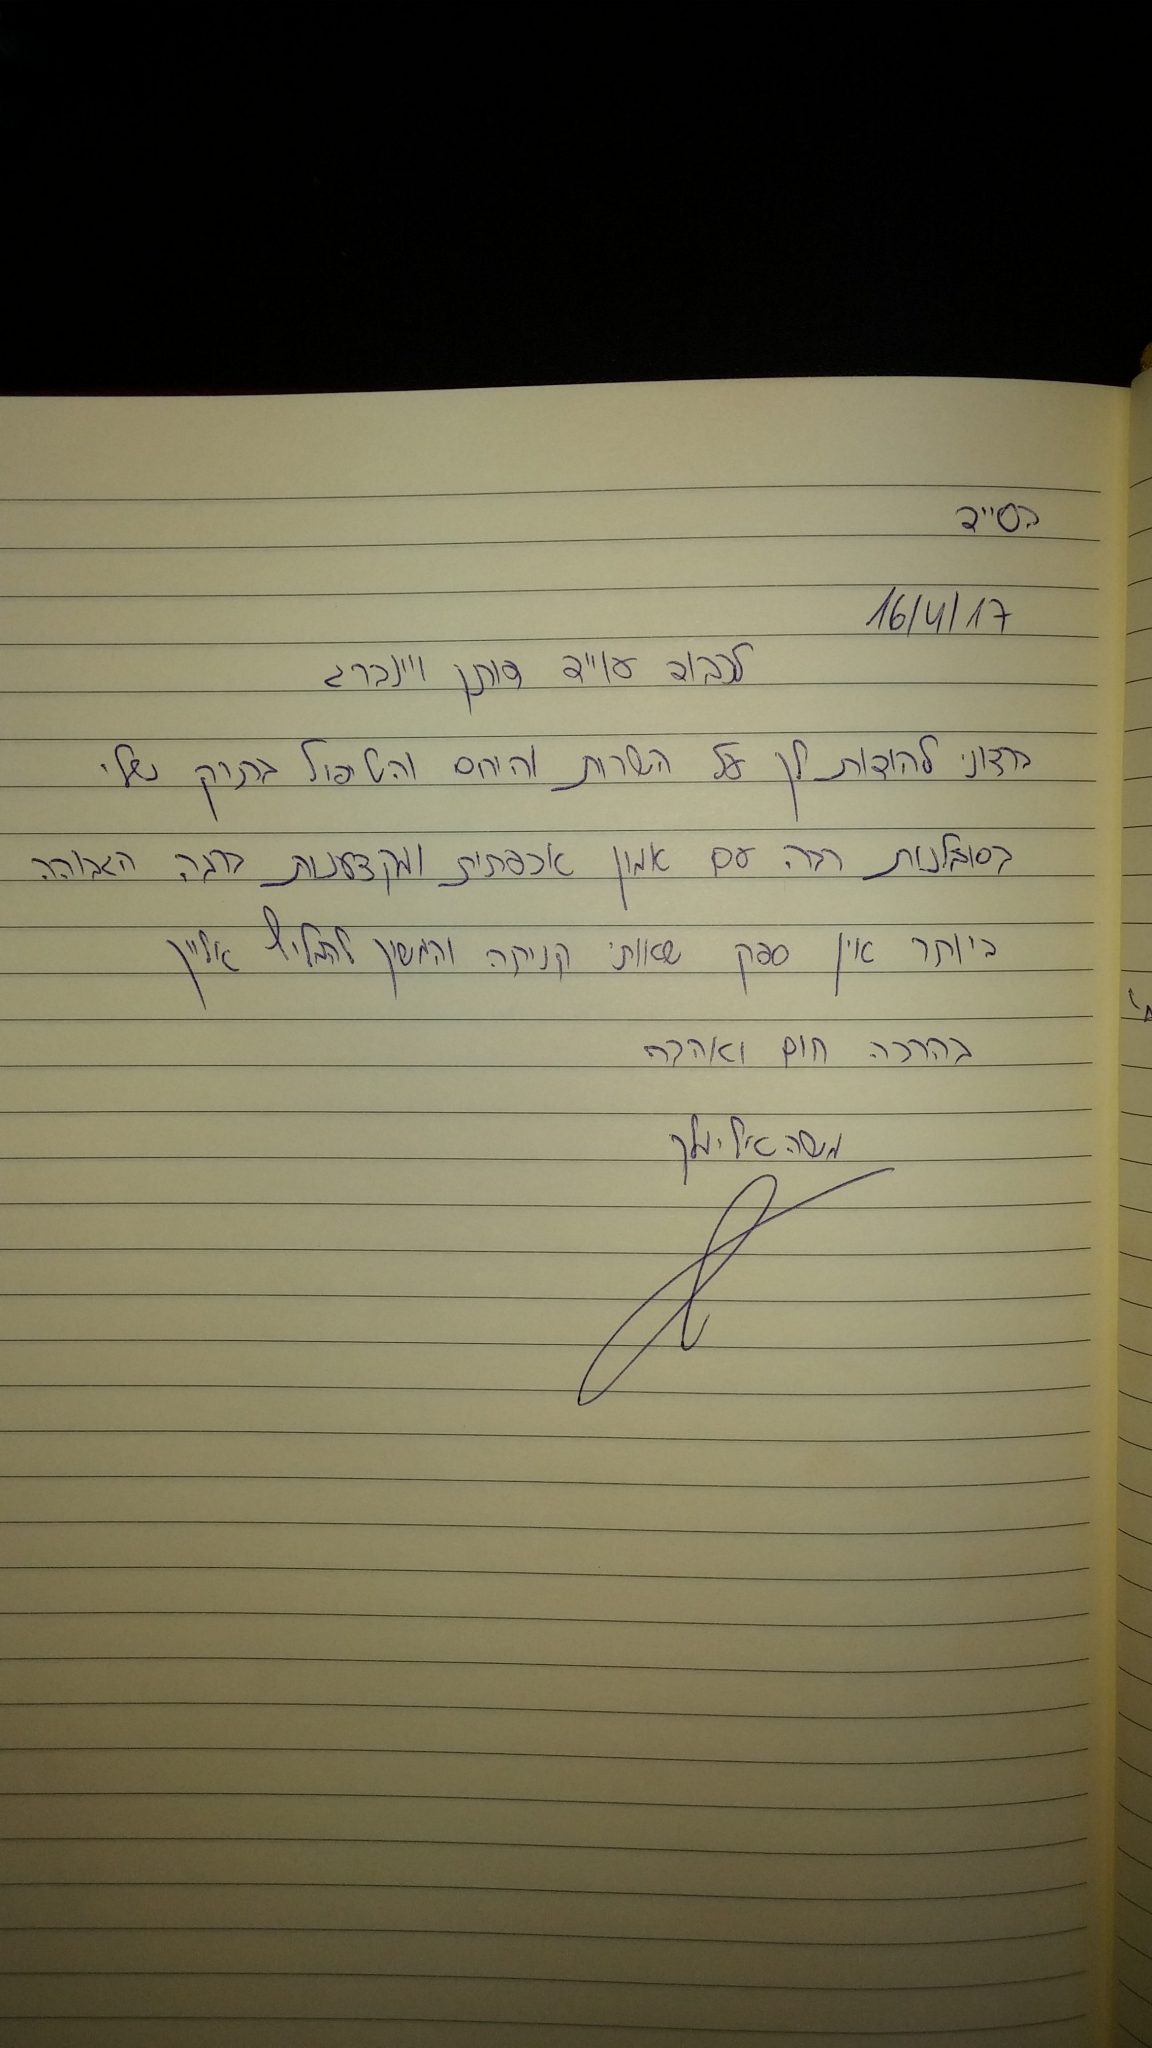 בס"ד
16/4/17
לכבוד עו"ד דותן ויינברג
ברצוני להודות לך על השרות והיחס והטיפול בתיק שלי
בסובלנות רבה עם אמון אכפתית ומקצענות ברמה הגבוהה
ביותר אין ספק שאותי קנית והמשך להמליץ אלייך
בהרכה חום ואהבה
משה אלימלך